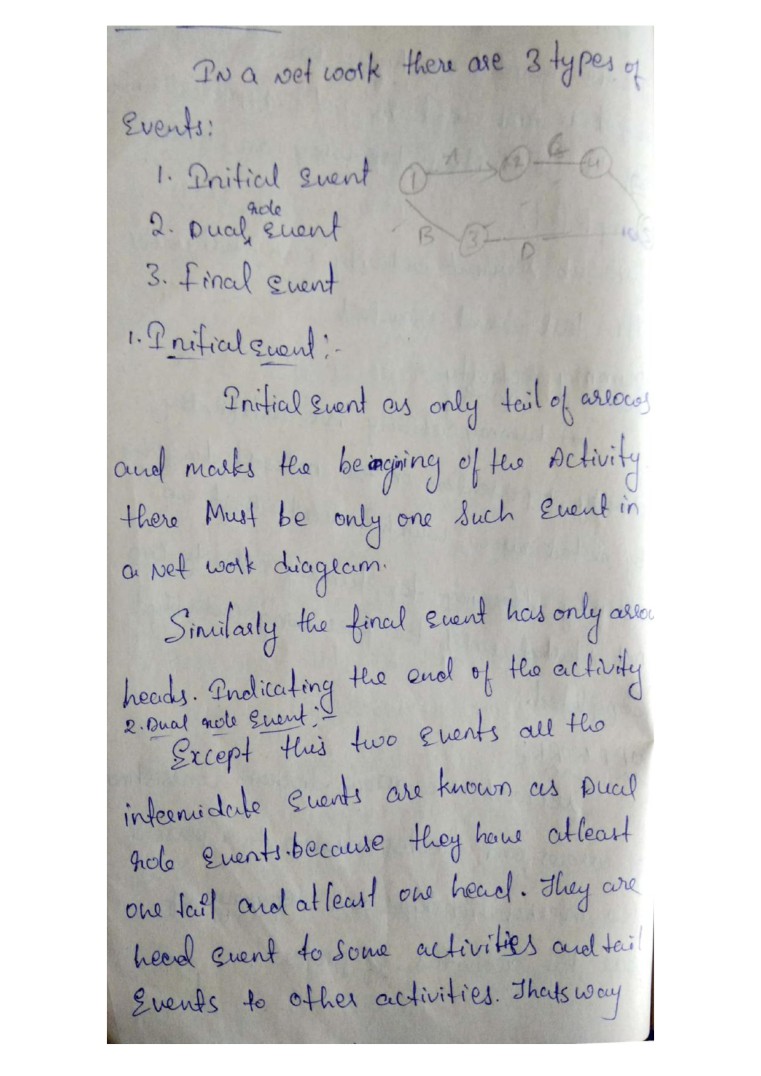 In a net work there are 3 types of
Events:
1. Initial Event
2. Dual role Event
3. final Event
1 A 2 C 4
B 3 D
1. Initial Event :-
Initial Event as only tail of arrows
and marks the beingning of the Activity.
there Must be only one Such Event in
a Net work diagram.
Similarly the final Event has only
heads. Indicating the end of the activity
2. Dual role Event :-
Except this two Events all the
intermidate Events are known as Dual
role Events. because they have atleast
one tail and atleast one head. They are
head Event to Some activities and tail
Events to other activities. Thats way